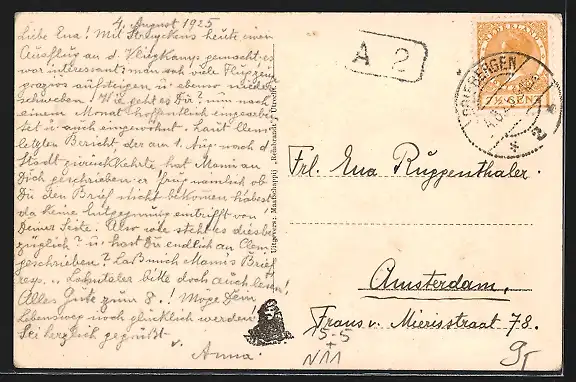 4. August 1925
Liebe Ena! Mit Struyckens heute einen
Ausflug an d. Vliegkamp gemacht. es
war interessant; man sah viele Flugzeuge
grazios aufsteigen u. ebenso nieder
schweben! Wie geht es Dir? nun nach
einem Monat hoffentlich eingearbei-
tet u. auch eingewohnt. Laut Clem.
letzten Bericht, der am 1. Aug. nach d.
Stadt zurück kehrte, hat Mami an
Dich geschrieben. er frug nämlich ob
Du den Brief nicht bekommen habest
da keine Entgegnung eintrifft von
Deiner Seite. Also wie steht es diesbe-
züglich? u. hast Du endlich an Clem.
geschrieben? Laß mich Mami's Brief
resp. bitte doch auch lesen!
Alles Gute zum 8.! Möge Dein
Lebensweg noch glücklich werden!
Sei herzlich gegrüßt
v. Anna.
Uitgevers: Maatschappij „Rembrandt" Utrecht
A 2
NEDERLAND
7½ CENT
Frl. Ena Ruggenthaler.
Amsterdam.
Frans v. Mierisstraat 78.
5-5
+
N11